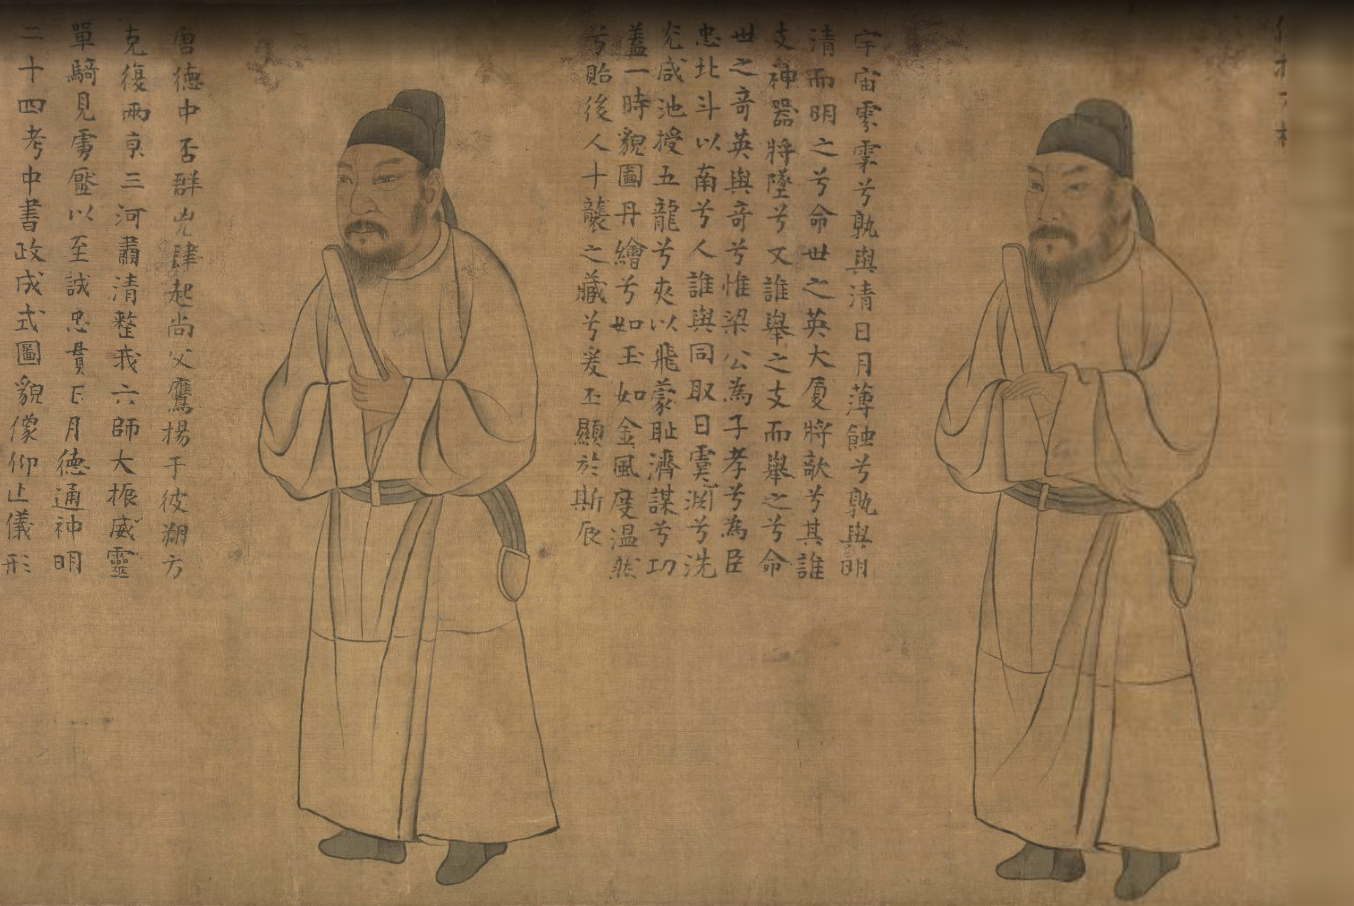 宇宙兮孰與清日月薄蝕兮孰與明
清而明之兮命世之英大廈將欹兮其誰
支神器將墜兮又誰舉之支而舉之兮命
世之奇英與奇兮惟梁公為子孝兮為臣
忠北斗以南兮人誰與同取日虞淵兮洗
光咸池授五龍兮夾以飛蒙恥濟謀兮功
蓋一時貌圖丹繪兮如玉如金風度温然
兮貽後人十襲之藏兮爰丕顯於斯辰
唐德中否群兇肆起尚父鷹揚于彼朔方
克復兩亰三河肅清整我六師大振威靈
單騎見虜壓以至誠忠貫日月德通神明
二十四考中書政成式圖貌像仰止儀形